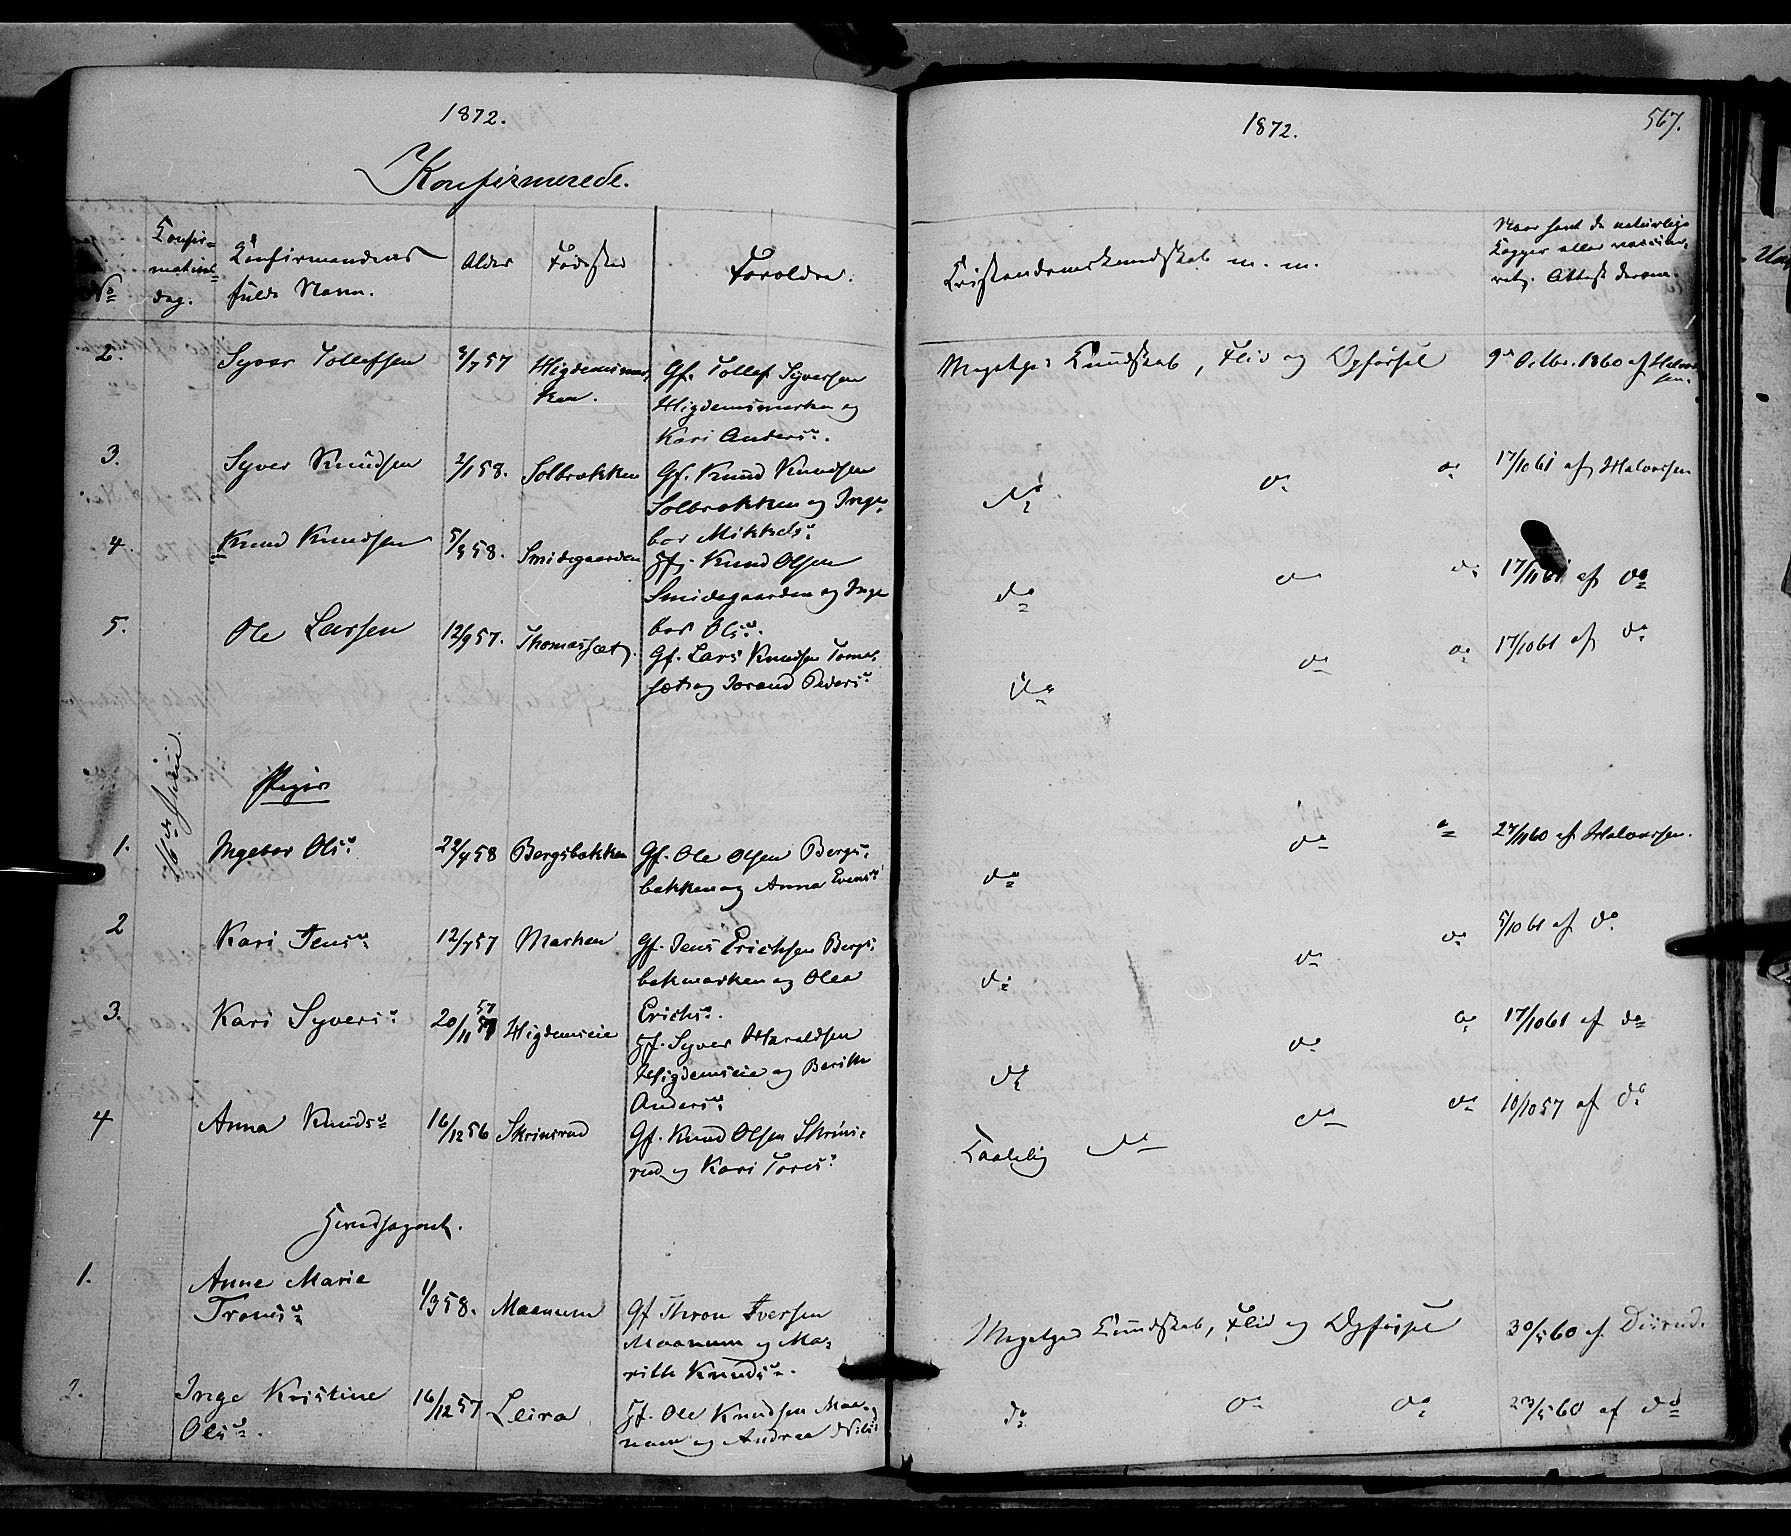 1872.
Konfirmerede.
No
Confir=
mations=
dag.
Konfirmandens
fulde Navn.
Alder
Fødested
Foreldre.
2.
Syver Tollefsen
3/7 57
Higdemsmar,
ken.
Gf. Tollef Syversen
Higdemsmarken og
Kari Andersd.
3.
Syver Knudsen
2/1 58.
Solbrekken
Gf. Knud Knudsen
Solbrækken og Inge,
bor Mikkelsd.
4.
Knud Knudsen
5/3 58.
Smidegaarden
Gf. Knud Olsen
Smidegaarden og Inge
bor Olsd.
5.
Ole Larsen
12/9 57.
Thomassæt.
Gf. Lars Knudsen Tomas,
sæt og Jorand Pedersd
16de Juni
Piger
1.
Ingebor Olsd.
22/4 58
Bergsbakken
Gf. Ole Olsen Bergs,
bakken og Anna Evensd
2
Kari Jensd
12/7 57
Marken
Gf. Jens Erichsen Bergs,
bakmarken og Olea
Erichsd.
3.
Kari Syversd
20/11 57
Higdemseie
Gf. Syver Haraldsen
Higdemseie og Berithe
Andersd
4
Anna Knudsd
16/12 56
Skrinsrud
Gf. Knud Olsen Skrins,
rud og Kari Toresd
1.
Anne Marie
Tronsd
1/3 58.
Maanum
Gf Thron Iversen
Maanum og Ma,
rith Knudsd.
2.
Inge Kristine
Olsd.
16/12 57
Leira
Gf. Ole Knudsen Maa=
num og Andrea Nilsd
1872.
567.
Kristendomskundskab m. m.
Naar havt de naturlige
Kopper eller vaccine,
ret. Attest derom.
Meget god Kundskab, Flid og Opførsel
9de Oktbr. 1860 af Halvor
sen.
do do do
17/10 61 af Halvorsen
do do do
17/11 61 af do
do do do
17/10 61 af do
do do do
27/11 60 af Halvorsen.
do do do
5/10 61 af do
do do do
17/10 61 af do
Taalelig do do do
10/10 57 af do
Meget god Kundskab, Flid og Opførsel
30/5 60 af Disrud.
do do do
23/5 60 af do